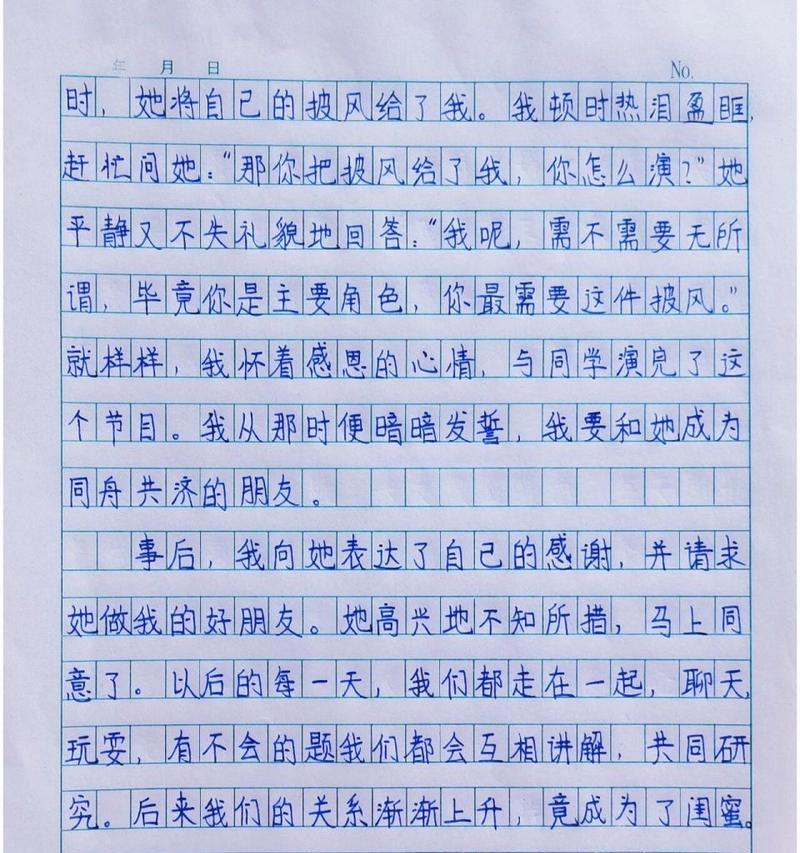 年 月 日 No.
时，她将自己的披风给了我。我顿时热泪盈眶，
赶忙问她：“那你把披风给了我，你怎么演？”她
平静又不失礼貌地回答：“我呢，需不需要无所
谓，毕竟你是主要角色，你最需要这件披风。”
就样样，我怀着感恩的心情，与同学演完了这
个节目。我从那时便暗暗发誓，我要和她成为
同舟共济的朋友。
事后，我向她表达了自己的感谢，并请求
她做我的好朋友。她高兴地不知所措，马上同
意了。以后的每一天，我们都走在一起，聊天，
玩耍，有不会的题我们都会互相讲解，共同研
究。后来我们的关系渐渐上升，竟成为了闺蜜。